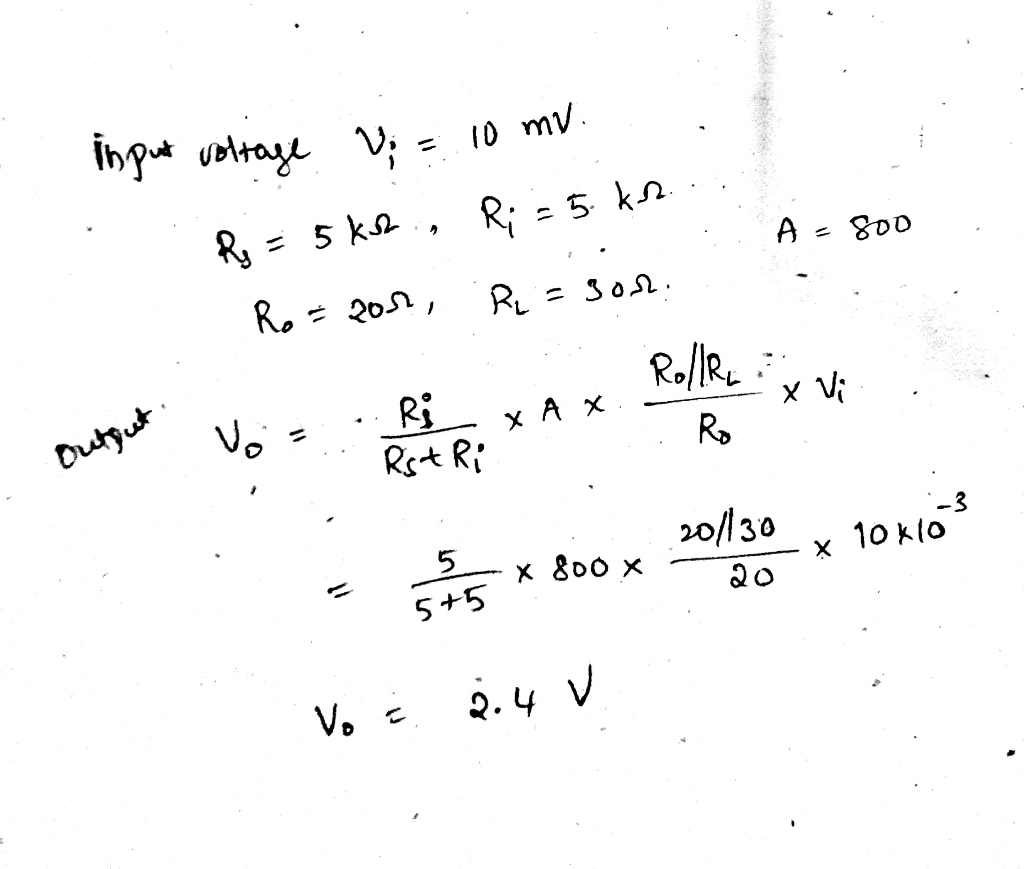 Input voltage Vi = 10 mV.
Rs = 5 kΩ, Ri = 5 kΩ
A = 800
Ro = 20Ω, RL = 30Ω.
Output Vo = Ri/(Rs+Ri) x A x Ro//RL/Ro x Vi
= 5/(5+5) x 800 x 20//30/20 x 10x10^-3
Vo = 2.4 V